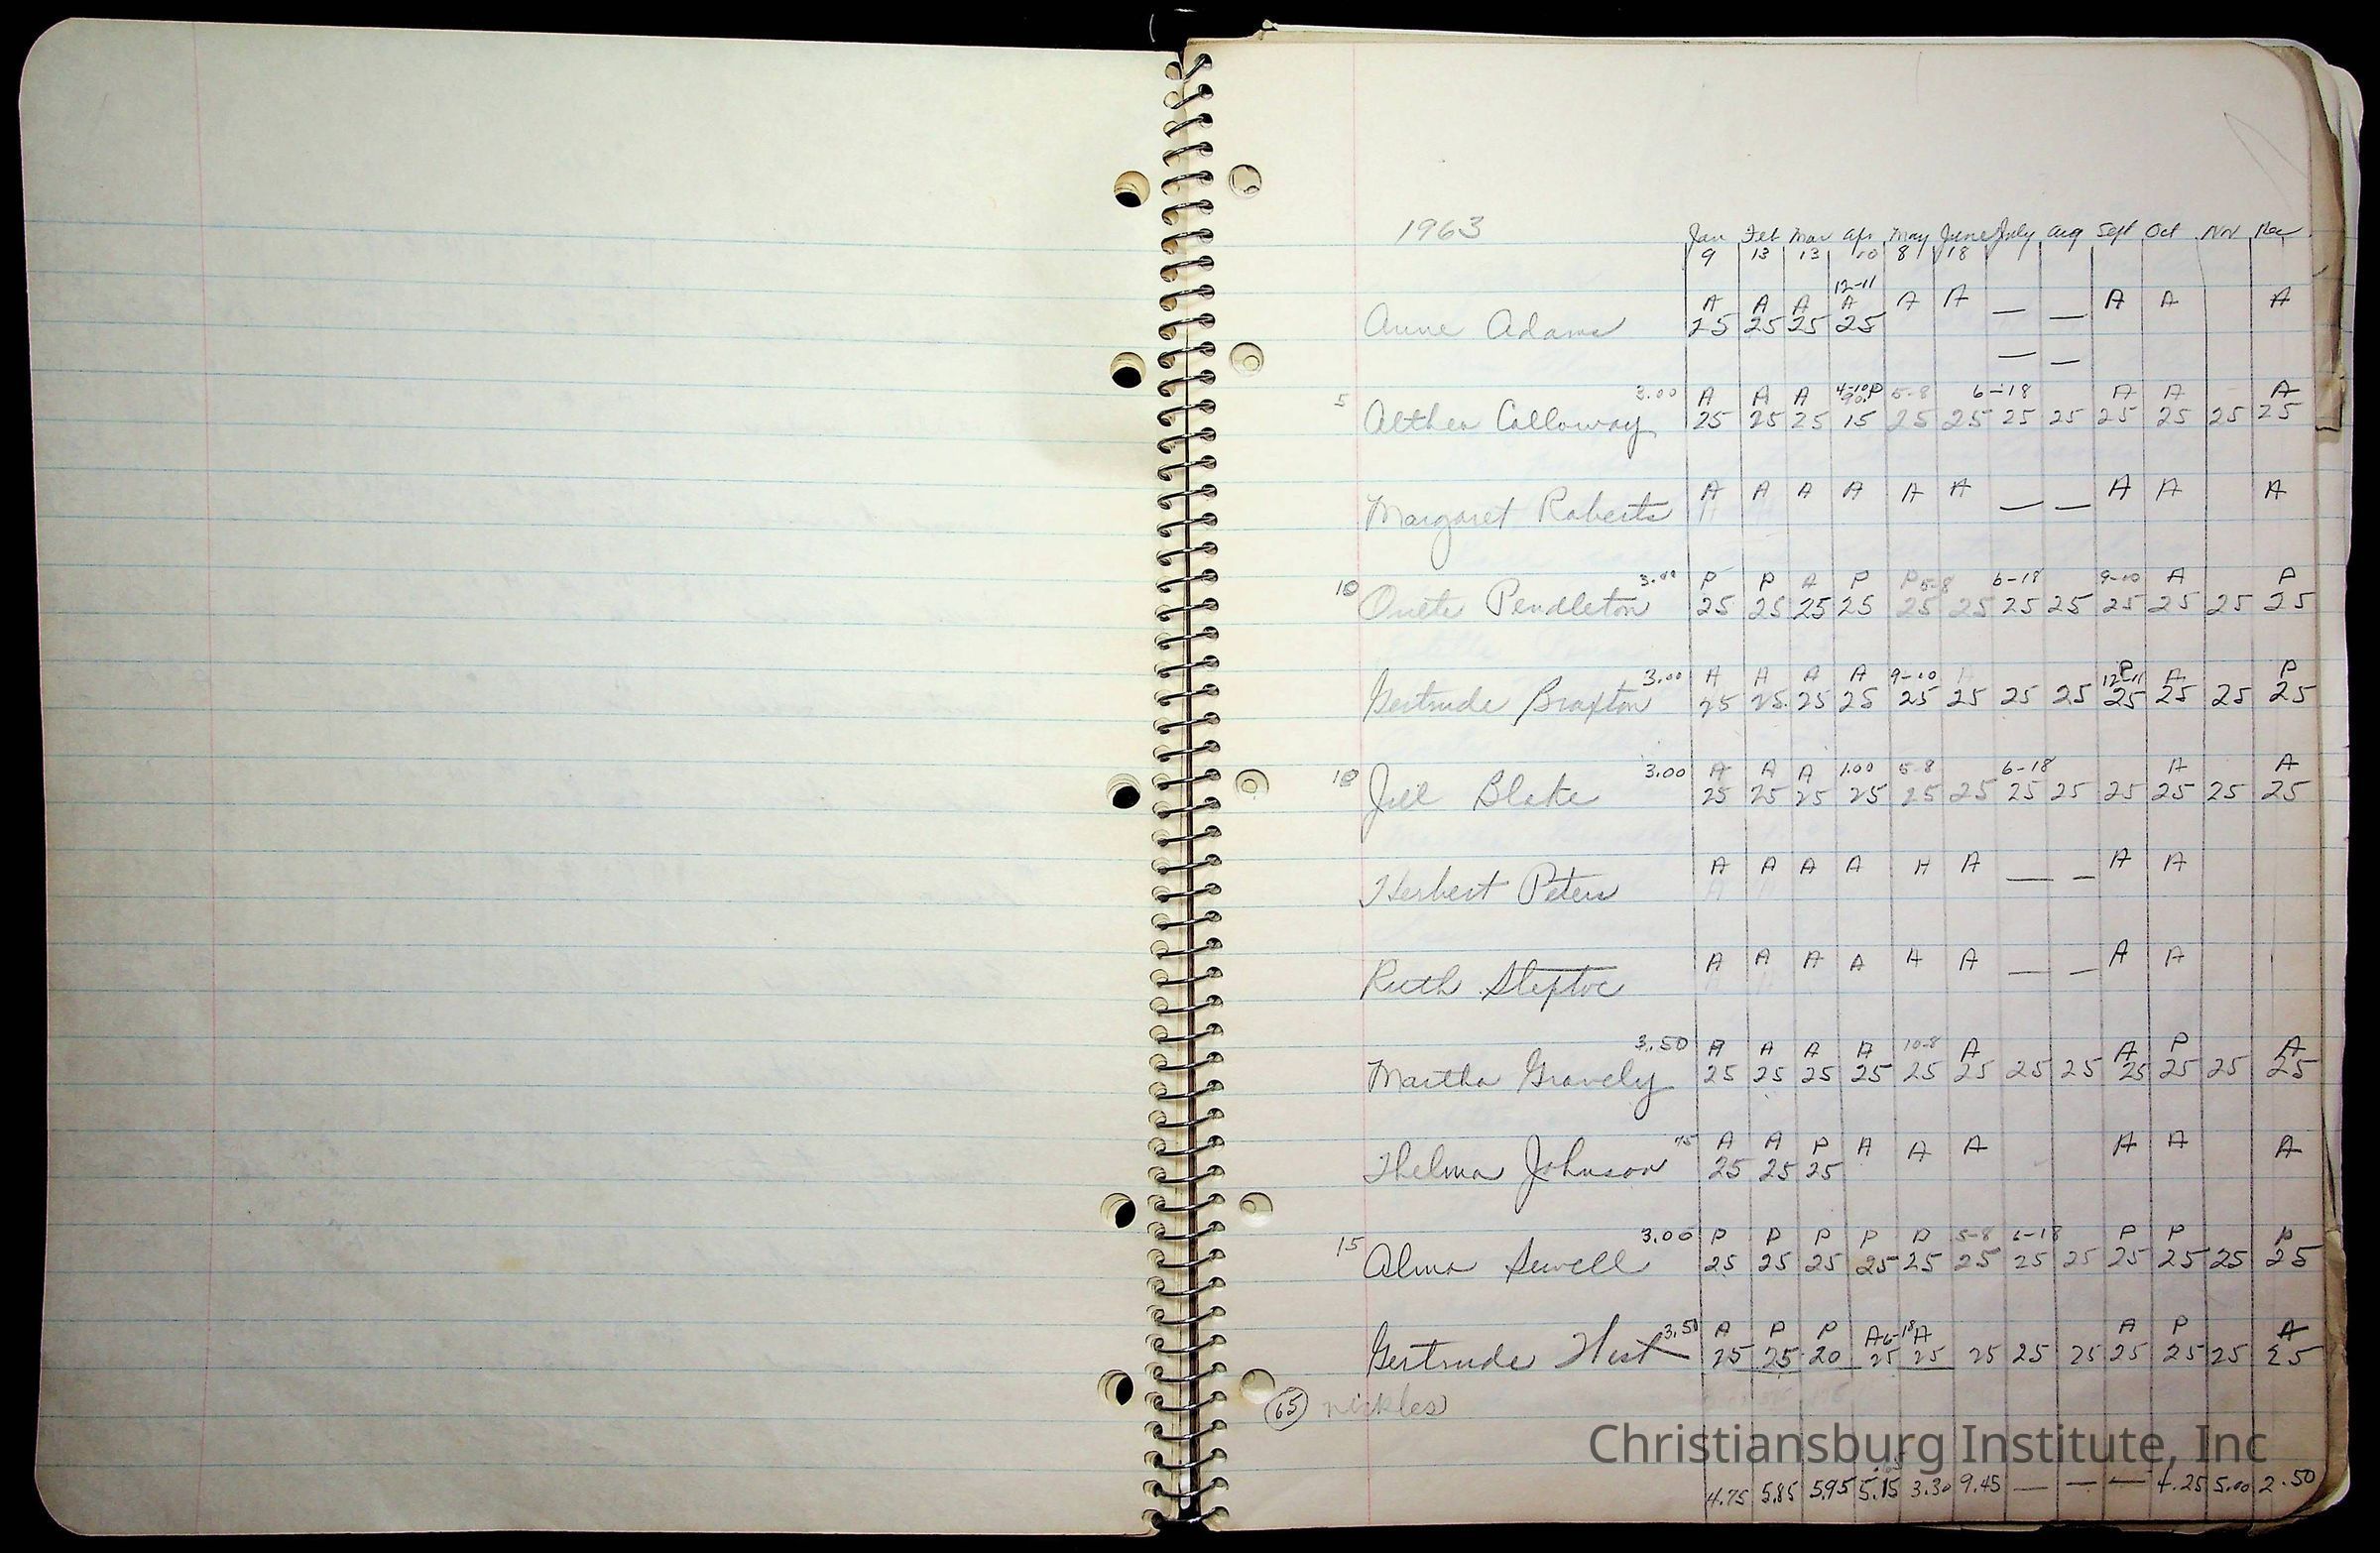 1963 Jan Feb Mar Apr May June July Aug Sept Oct Nov Dec
9 13 13 10 8 18
12-11
A A A A A A — — A A A
Anne Adams 25 25 25 25
— —
5 3.00 A A A 4-10 P 5-8 6-18 A A A
Althea Calloway 25 25 25 15 25 25 25 25 25 25 25 25
A A A A A A — — A A A
Margaret Roberts
10 3.00 P P A P P 5-8 6-18 9-10 A P
Oneta Pendleton 25 25 25 25 25 25 25 25 25 25 25 25
3.00 A A A A 9-10 P 12-11 A P
Gertrude Braxton 25 25 25 25 25 25 25 25 25 25 25 25
10 3.00 A A A 1.00 5-8 6-18 A A
Jill Blake 25 25 25 25 25 25 25 25 25 25 25 25
A A A A A A — — A A
Herbert Peters
A A A A A A — — A A
Ruth Steptoe
3.50 A A A A 10-8 A A P A
Martha Gravely 25 25 25 25 25 25 25 25 25 25 25 25
75 A A P A A A A A A
Thelma Johnson 25 25 25
15 3.00 P P P P P 5-8 6-18 P P P
Alma Sewell 25 25 25 25 25 25 25 25 25 25 25 25
3.50 A P P A 6-18 A A P A
Gertrude Hest 25 25 20 25 25 25 25 25 25 25 25 25
65 nickles
Christiansburg Institute, Inc
4.75 5.85 5.95 5.15 3.30 9.45 — — — 4.25 5.00 2.50